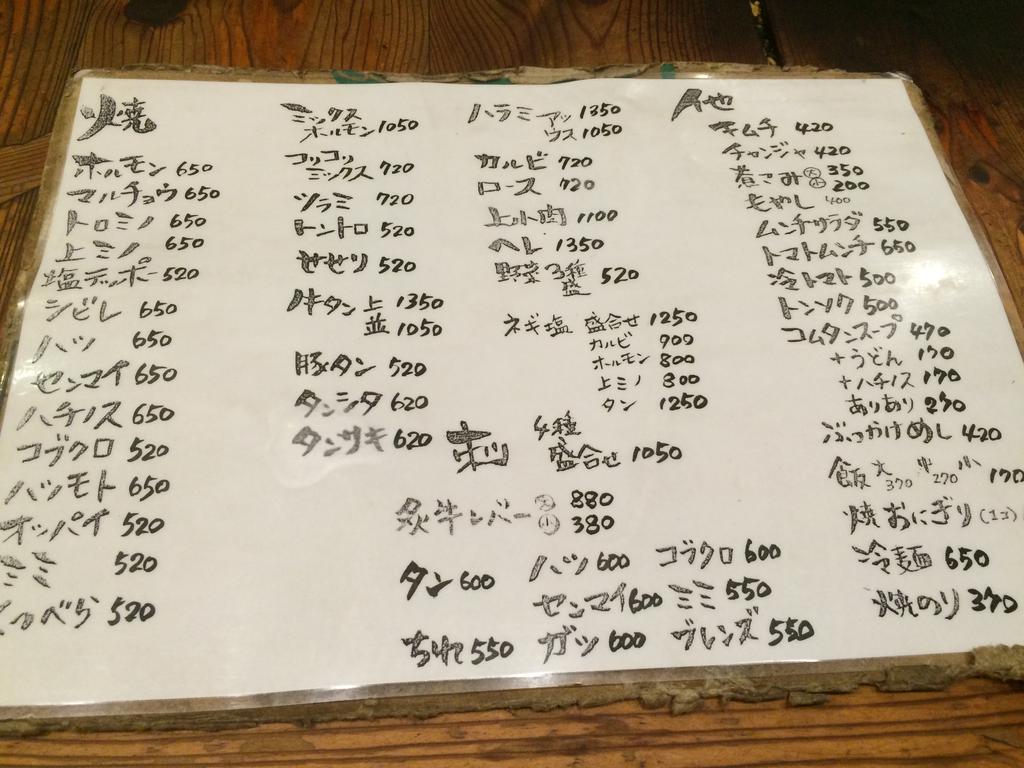 焼
ホルモン 650
マルチョウ 650
トロミノ 650
上ミノ 650
塩テッポー 520
シビレ 650
ハツ 650
センマイ 650
ハチノス 650
コブクロ 520
ハツモト 650
オッパイ 520
ミミ 520
くつべら 520
ミックス
ホルモン 1050
コリコリ
ミックス 720
ツラミ 720
トントロ 520
せせり 520
牛タン 上 1350
並 1050
豚タン 520
タンシタ 620
タンサキ 620
ハラミ アツ 1350
ウス 1050
カルビ 720
ロース 720
上小肉 1100
ヘレ 1350
野菜3種
盛 520
ネギ塩 盛合せ 1250
カルビ 900
ホルモン 800
上ミノ 800
タン 1250
4種
盛合せ 1050
炙牛レバー 大 880
小 380
タン 600
ハツ 600
コブクロ 600
センマイ 600
ミミ 550
ちれ 550
ガツ 600
ブレンズ 550
他
キムチ 420
チャンジャ 420
煮こみ 大 350
小 200
もやし 400
ムンチサラダ 550
トマトムンチ 650
冷トマト 500
トンソク 500
コムタンスープ 470
+うどん 170
+ハチノス 170
ありあり 270
ぶっかけめし 420
飯 大370 中270 小170
焼おにぎり (1コ)
冷麺 650
焼のり 370